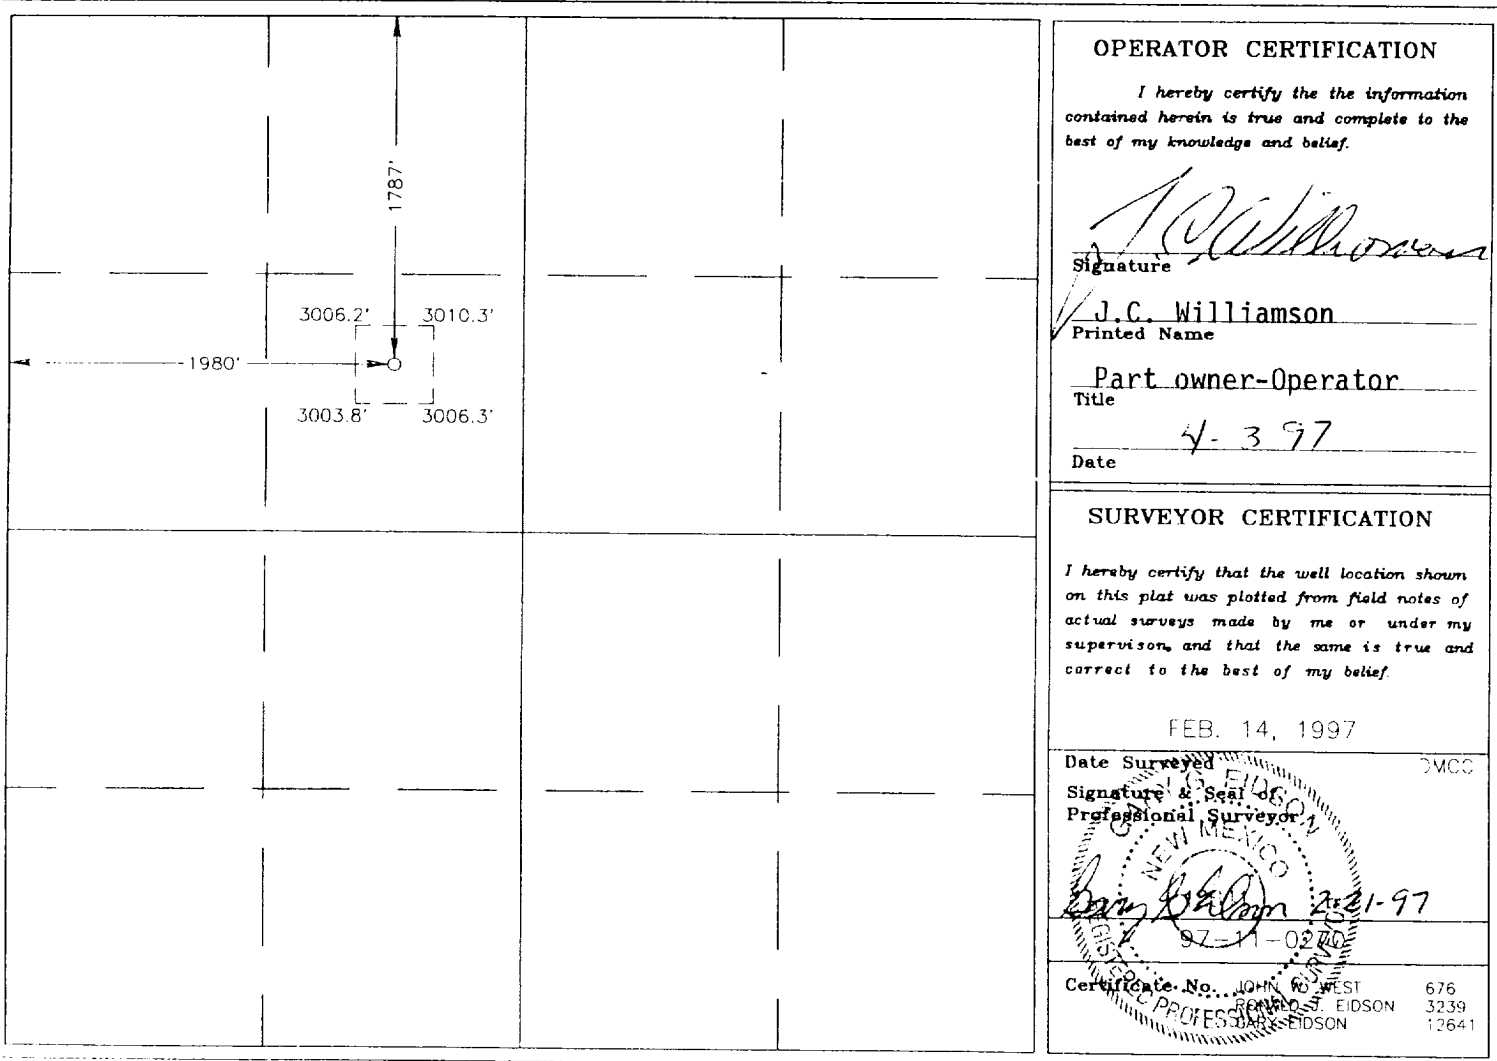 1787'
3006.2' 3010.3'
1980'
3003.8' 3006.3'
OPERATOR CERTIFICATION
I hereby certify the the information
contained herein is true and complete to the
best of my knowledge and belief.
J C Williamson
Signature
J.C. Williamson
Printed Name
Part owner-Operator
Title
4-3 97
Date
SURVEYOR CERTIFICATION
I hereby certify that the well location shown
on this plat was plotted from field notes of
actual surveys made by me or under my
supervison, and that the same is true and
correct to the best of my belief.
FEB. 14, 1997
Date Surveyed DMCC
Signature & Seal of
Professional Surveyor
GARY G. EIDSON
NEW MEXICO
REGISTERED PROFESSIONAL SURVEYOR
Gary G Eidson 2-21-97
97-11-0270
Certificate No. JOHN W. WEST 676
RONALD J. EIDSON 3239
GARY EIDSON 12641